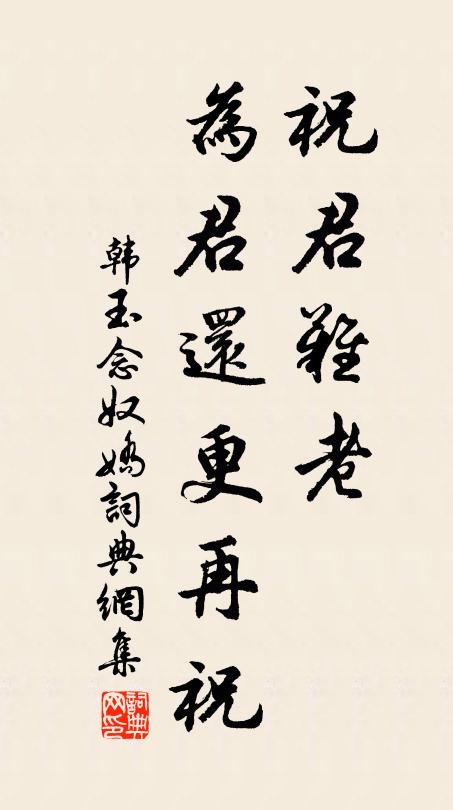 祝君難老
為君還更再祝
韩玉念奴嬌詞典網集
詞典网印